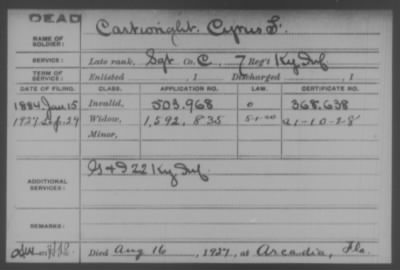 DEAD
NAME OF SOLDIER: Cartwright, Cyrus F.
SERVICE: Late rank, Sgt Co. C, 7 Reg't Ky Inf
TERM OF SERVICE: Enlisted , 1 Discharged , 1
DATE OF FILING. CLASS. APPLICATION NO. LAW. CERTIFICATE NO.
1884 Jan 15 Invalid, 503.968 o 368.638
1927 Sep. 29 Widow, 1,592,835 5-1-20 A1-10-28
Minor,
ADDITIONAL SERVICES: G 49 22 Ky Inf.
REMARKS:
Died Aug 16, 1927, at Arcadia, Fla.